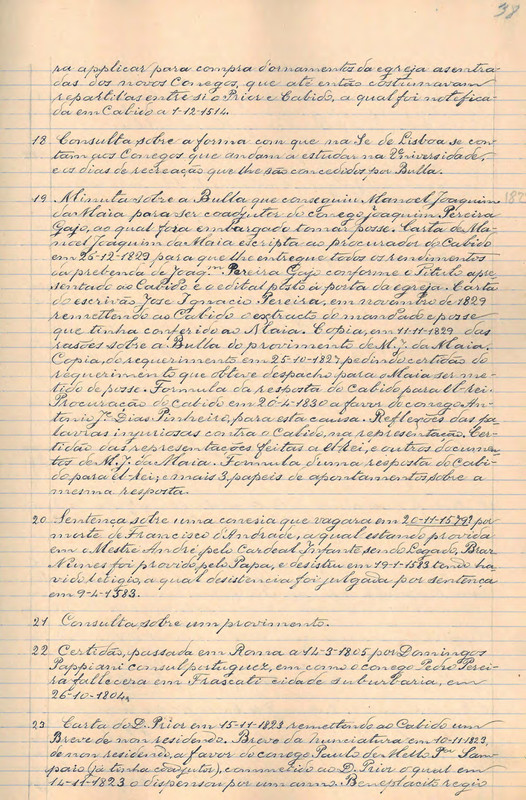 38
ra applicar para compra d'ornamentos da egreja as entra-
das dos novos Conegos, que até então costumavam
repartil-as entre si o Prior e Cabido, a qual foi notifica-
da em Cabido a 1-12-1514.
18 Consulta sobre a forma com que na Sé de Lisboa se con-
tam aos Conegos que andam a estudar na Universidade,
e os dias de recreação que lhe são concedidos por Bulla.
19 Minuta sobre a Bulla que conseguiu Manoel Joaquim
da Maia para ser coadjutor do Conego Joaquim Pereira
Gajo, ao qual fora embargado tomar posse. Carta de Ma-
noel Joaquim da Maia escripta ao procurador do Cabido
em 26-12-1829 para que lhe entregue todos os rendimentos
da prebenda de Joaqm Pereira Gajo conforme o Titulo apre-
sentado ao Cabido e o edital posto á porta da egreja. Carta
do escrivão, Jose Ignacio Pereira, em novembro de 1829
remettendo ao Cabido o extracto do mandado e posse
que tinha conferido ao Maia. Copia, em 11-11-1829 das
rasões sobre a Bulla do provimento de M. J. da Maia.
Copia, do requerimento em 25-10-1827 pedindo certidão do
requerimento que obteve despacho para o Maia ser met-
tido de posse. Formula da resposta do Cabido para El-rei.
Procuração do Cabido em 20-4-1830 a favor do conego An-
tonio Je. Dias Pinheiro, para esta causa. Reflexões das pa-
lavras injuriosas contra o Cabido, na representação. Cer-
tidão das representações feitas a El-rei, e outros documen-
tos de M. J. da Maia. Formula d'uma resposta do Cabi-
do para El-rei; e mais 3 papeis de apontamentos sobre a
mesma resposta.
20 Sentença sobre uma conesia que vagara em 20-11-1579? por
morte de Francisco d'Andrade, a qual estando provida
em o Mestre André pelo Cardeal Infante sendo Legado, Braz
Nunes foi provido pelo Papa, e desistiu em 19-1-1583 tendo ha-
vido letigio, a qual desistencia foi julgada por sentença
em 9-4-1583.
21 Consulta sobre um provimento.
22 Certidão, passada em Roma a 14-3-1805 por Domingos
Pappiani consul portuguez, em como o conego Pedro Perei-
ra fallecera em Frascati cidade suburbaria, em
26-10-1804.
23 Carta do D. Prior em 15-11-1823 remettendo ao Cabido um
Breve de non residendo. Breve da Nunciatura em 10-11-1823,
de non residendo, a favor do conego Paulo de Mello Sam-
paio (já tinha coadjutor), commetido ao D. Prior o qual em
14-11-1823 o dispensou por um anno. Beneplacito regio